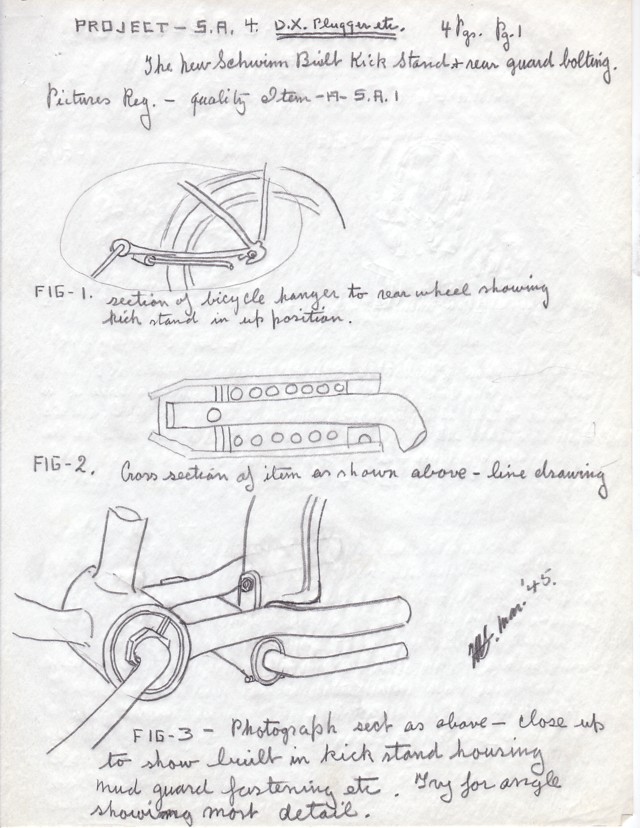 PROJECT - S.A. 4. D.X. Plugger etc. 4 Pgs. Pg. 1
The new Schwinn Built Kick Stand + rear guard bolting.
Pictures Req. - quality Item -A- S.A. 1
FIG-1. section of bicycle hanger to rear wheel showing
kick stand in up position.
FIG-2. Cross section of item as shown above - line drawing
Mar. '45.
FIG-3 - Photograph sect as above - close up
to show built in kick stand housing
mud guard fastening etc. Try for angle
showing most detail.